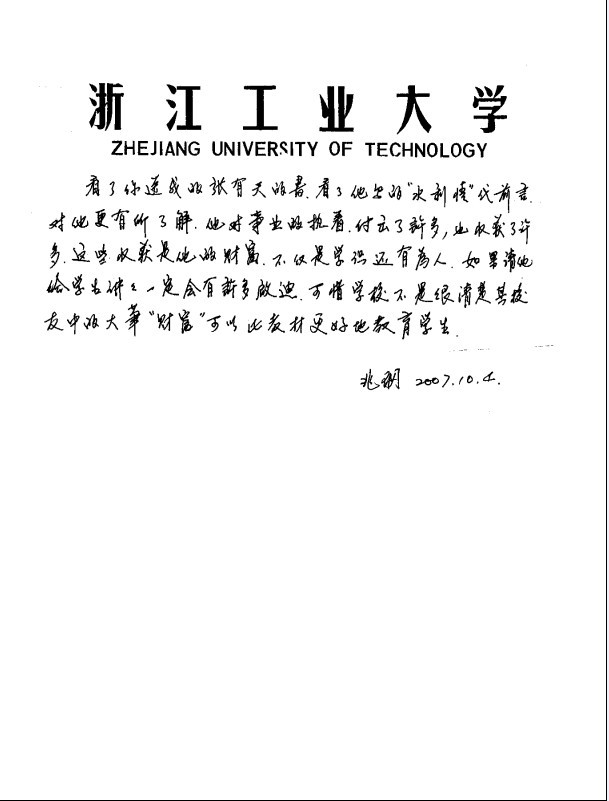 浙江工业大学
ZHEJIANG UNIVERSITY OF TECHNOLOGY
看了你送我的张有天的書.看了他写的"水利情"代前言.
对他更有所了解.他对事业的执着.付出了許多,也收获了許
多.这些收获是他的财富.不仅是学识还有為人.如果請他
给学生讲讲一定会有許多啟迪.可惜学校不是很清楚其校
友中的大筆"财富"可以比教材更好地教育学生.
兆玥 2007.10.4.